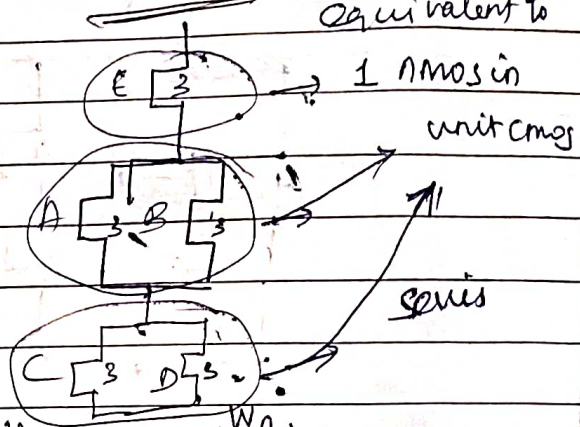 equivalent to
E 3
1 nmos in
unit cmos
A 3 B 3
series
C 3 D 3
Wn